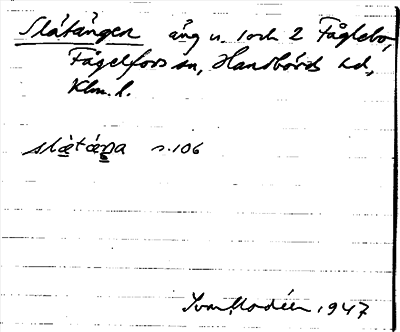 Slåtängen äng u. 1 och 2 Fåglebo,
Fågelfors sn, Handbörds hd,
Klm. l.
slåtäŋa s. 106
Ivar Modéer 1947